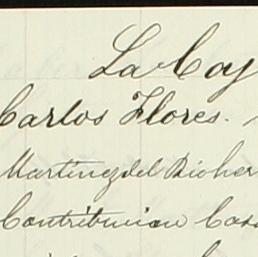 La Coy
Carlos Flores.
Martinez del Rio her
Contribucion Casa